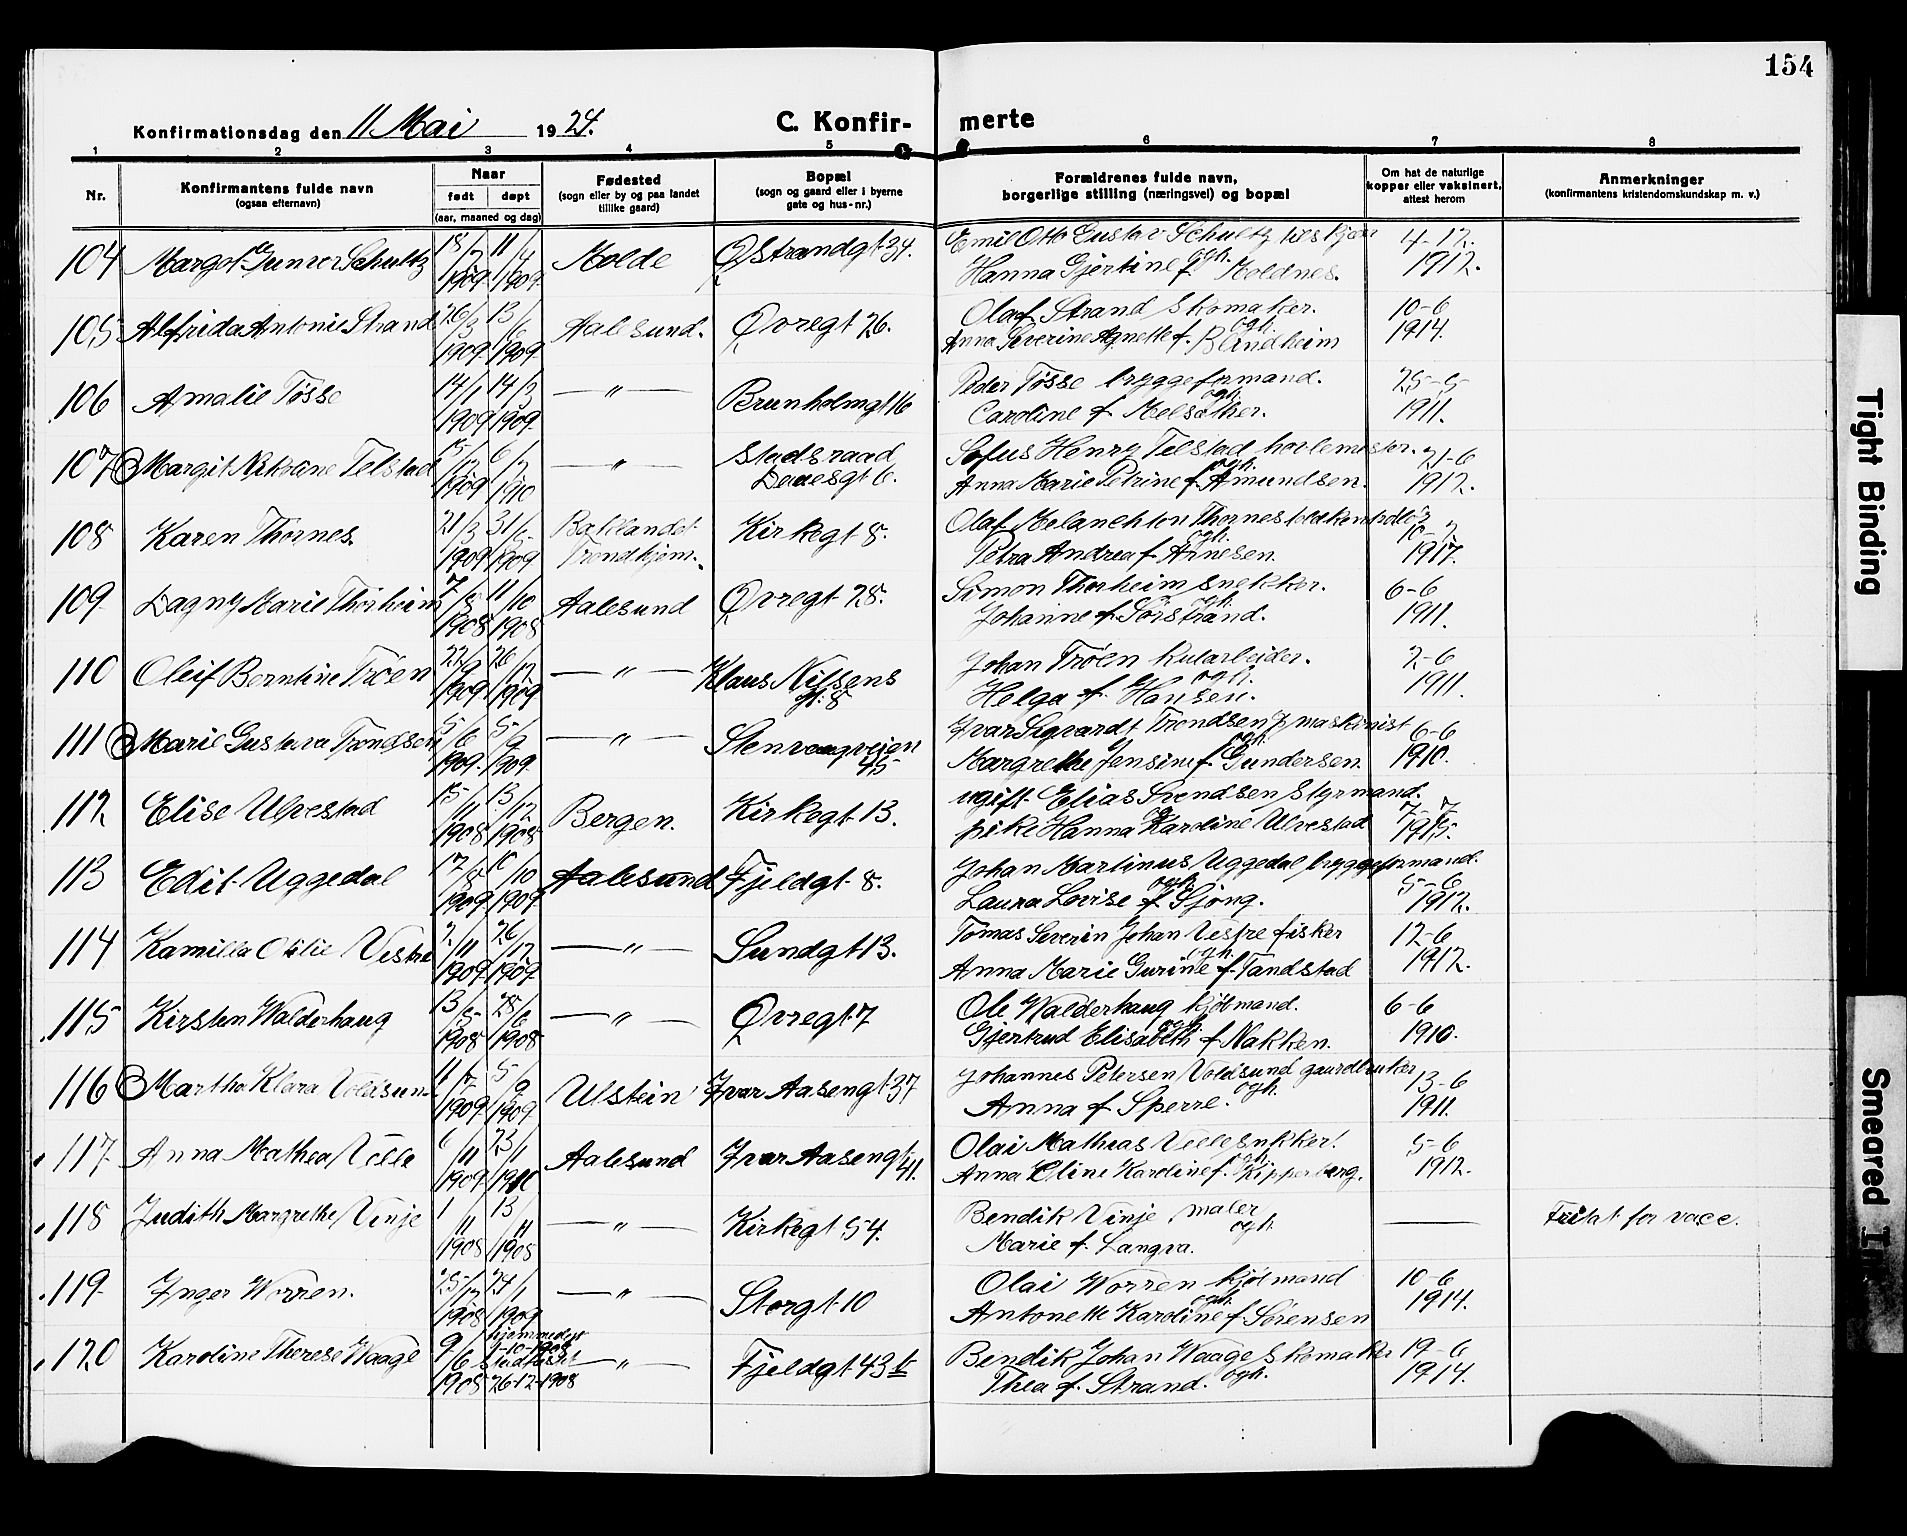 154
Konfirmationsdag den 11 Mai 1924.
C. Konfir- merte
1 2 3 4 5 6 7 8
Nr.
Konfirmantens fulde navn
(ogsaa efternavn)
Naar
født døpt
(aar, maaned og dag)
Fødested
(sogn eller by og paa landet
tillike gaard)
Bopæl
(sogn og gaard eller i byerne
gate og hus-nr.)
Forældrenes fulde navn,
borgerlige stilling (næringsvei) og bopæl
Om hat de naturlige
kopper eller vaksinert,
attest herom
Anmerkninger
(konfirmantens kristendomskundskap m. v.)
104 Margot Schultz 18/2 1909 11/4 1909 Molde Ø Strandgt 34. Emil Otto Gustav Schultz 4-12.
Hanna Gjertine f. Moldnes. 1912.
105 Alfrida Antonie Strand 26/3 1909 13/6 1909 Aalesund. Øvregt 26. Olaf Strand skomaker. 10-6
ogh.
Anna Severine Agnette f. Blindheim 1914.
106 Amalie Tøsse 14/1 1909 14/3 1909 —"— Brunholmgt 16 Peder Tøsse bryggeformand. 25-5
ogh.
Caroline f. Melsæther. 1911.
107 Margit Telstad 1909 6/2 1910 —"— Stadsraad Sofus Henry Telstad 21-6
ogh.
Daaesgt 6. Anna Marie Petrine f. Amundsen. 1912.
108 Karen Thornes. 21/3 1909 31/5 1909 Baklandet Kirkegt 8. Olaf Melanchton Thornes
ogh.
Trondhjem. Petra Andrea f. Arnesen. 1917.
109 Dagny Marie Thorheim 7/8 1908 11/10 1908 Aalesund Øvregt 28. Simon Thorheim snekker. 6-6
ogh.
Johanne f. Sørstrand. 1911.
110 Oleif Berntine Trøen 22/9 1909 26/12 1909 —"— Klaus Nilsens Johan Trøen kularbeider. 2-6
ogh.
gt. 8 Helga f. Hansen. 1911.
111 Marie Gustava Trondsen 5/6 1909 5/9 1909 —"— Stenvaagveien Ivar Sigvardt Trondsen maskinist 6-6
ogh.
45 Margrethe Jensine f. Gundersen. 1910.
112 Elise Ulvestad 15/11 1908 13/12 1908 Bergen. Kirkegt 13. ugift Elias Svendsen Styrmand. 7-7
pike Hanna Karoline Ulvestad 1915.
113 Edit Uggedal 17/8 1909 10/10 1909 Aalesund Fjeldgt. 8. Johan Martinus Uggedal bryggeformand. 5-6
ogh.
Laura Lovise f. Sjong. 1912.
114 Kamilla Otilie Vestre 2/11 1909 26/12 1909 —"— Sundgt 13. Tomas Severin Johan Vestre fisker 12-6
ogh.
Anna Marie Gurine f. Tandstad 1912.
115 Kirsten Walderhaug 13/5 1908 28/6 1908 —"— Øvregt 7 Ole Walderhaug kjøbmand. 6-6
ogh.
Gjertrud Elisabeth f. Nakken. 1910.
116 Martha Klara Voldsun 1909 5/9 1909 Ulstein Ivar Aasengt 37 Johannes Petersen Voldsund gaardbruker 13-6
ogh.
Anna f. Sperre. 1911.
117 Anna Mathea Velle 6/11 1909 23/1 1910 Aalesund Ivar Aasengt Olai Mathias Velle 5-6
41. Anna Eline Karoline f. Kipperberg. 1912.
118 Judith Margrethe Vinje 1/11 1908 13/11 1908 —"— Kirkegt 54. Bendik Vinje, maler — Fritat for vacc.
ogh.
Marie f. Langva.
119 Inger Worren. 25/12 1908 24/1 1909 —"— Storgt 10 Olai Worren kjøbmand 10-6
ogh.
Antonette Karoline f. Sørensen 1914.
120 Karoline Therese Waage 9/6 1908 hjemmedøpt 1-10-1908 stadfæstet 26-12-1908 —"— Fjeldgt 43 b Bendik Johan Waage Skomaker 19-6
ogh.
Thea f. Strand. 1914.
Tight Binding
Smeared